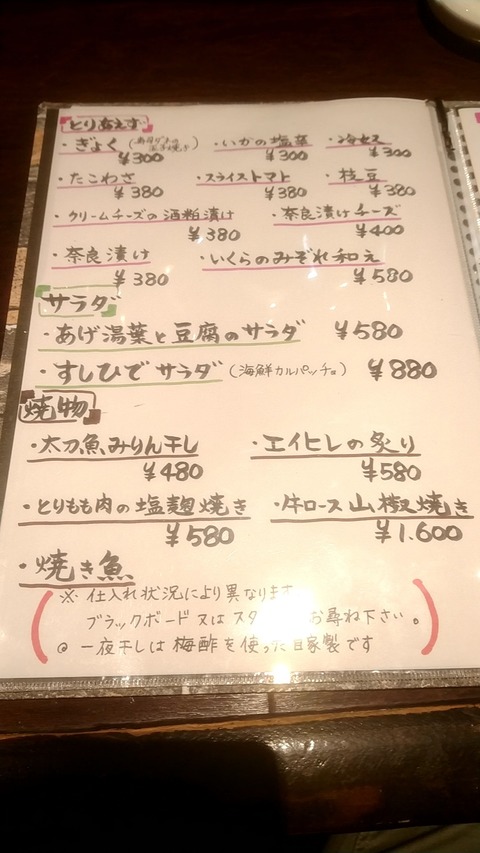 とりあえず
・ぎょく ・いかの塩辛 ・海ぶどう
¥300 ¥300 ¥300
・たこわさ ・スライストマト ・枝豆
¥380 ¥380 ¥380
・クリームチーズの酒粕漬け ・奈良漬けチーズ
¥380 ¥400
・奈良漬け ・いくらのみぞれ和え
¥380 ¥580
サラダ
・あげ湯葉と豆腐のサラダ ¥580
・すしひでサラダ(海鮮カルパッチョ) ¥880
焼物
・太刀魚みりん干し ・エイヒレの炙り
¥480 ¥580
・とりもも肉の塩麹焼き ・牛ロース山椒焼き
¥580 ¥1.600
・焼き魚
※ 仕入れ状況により異なります
ブラックボード又はスタ お尋ね下さい。
◎ 一夜干しは梅酢を使った自家製です